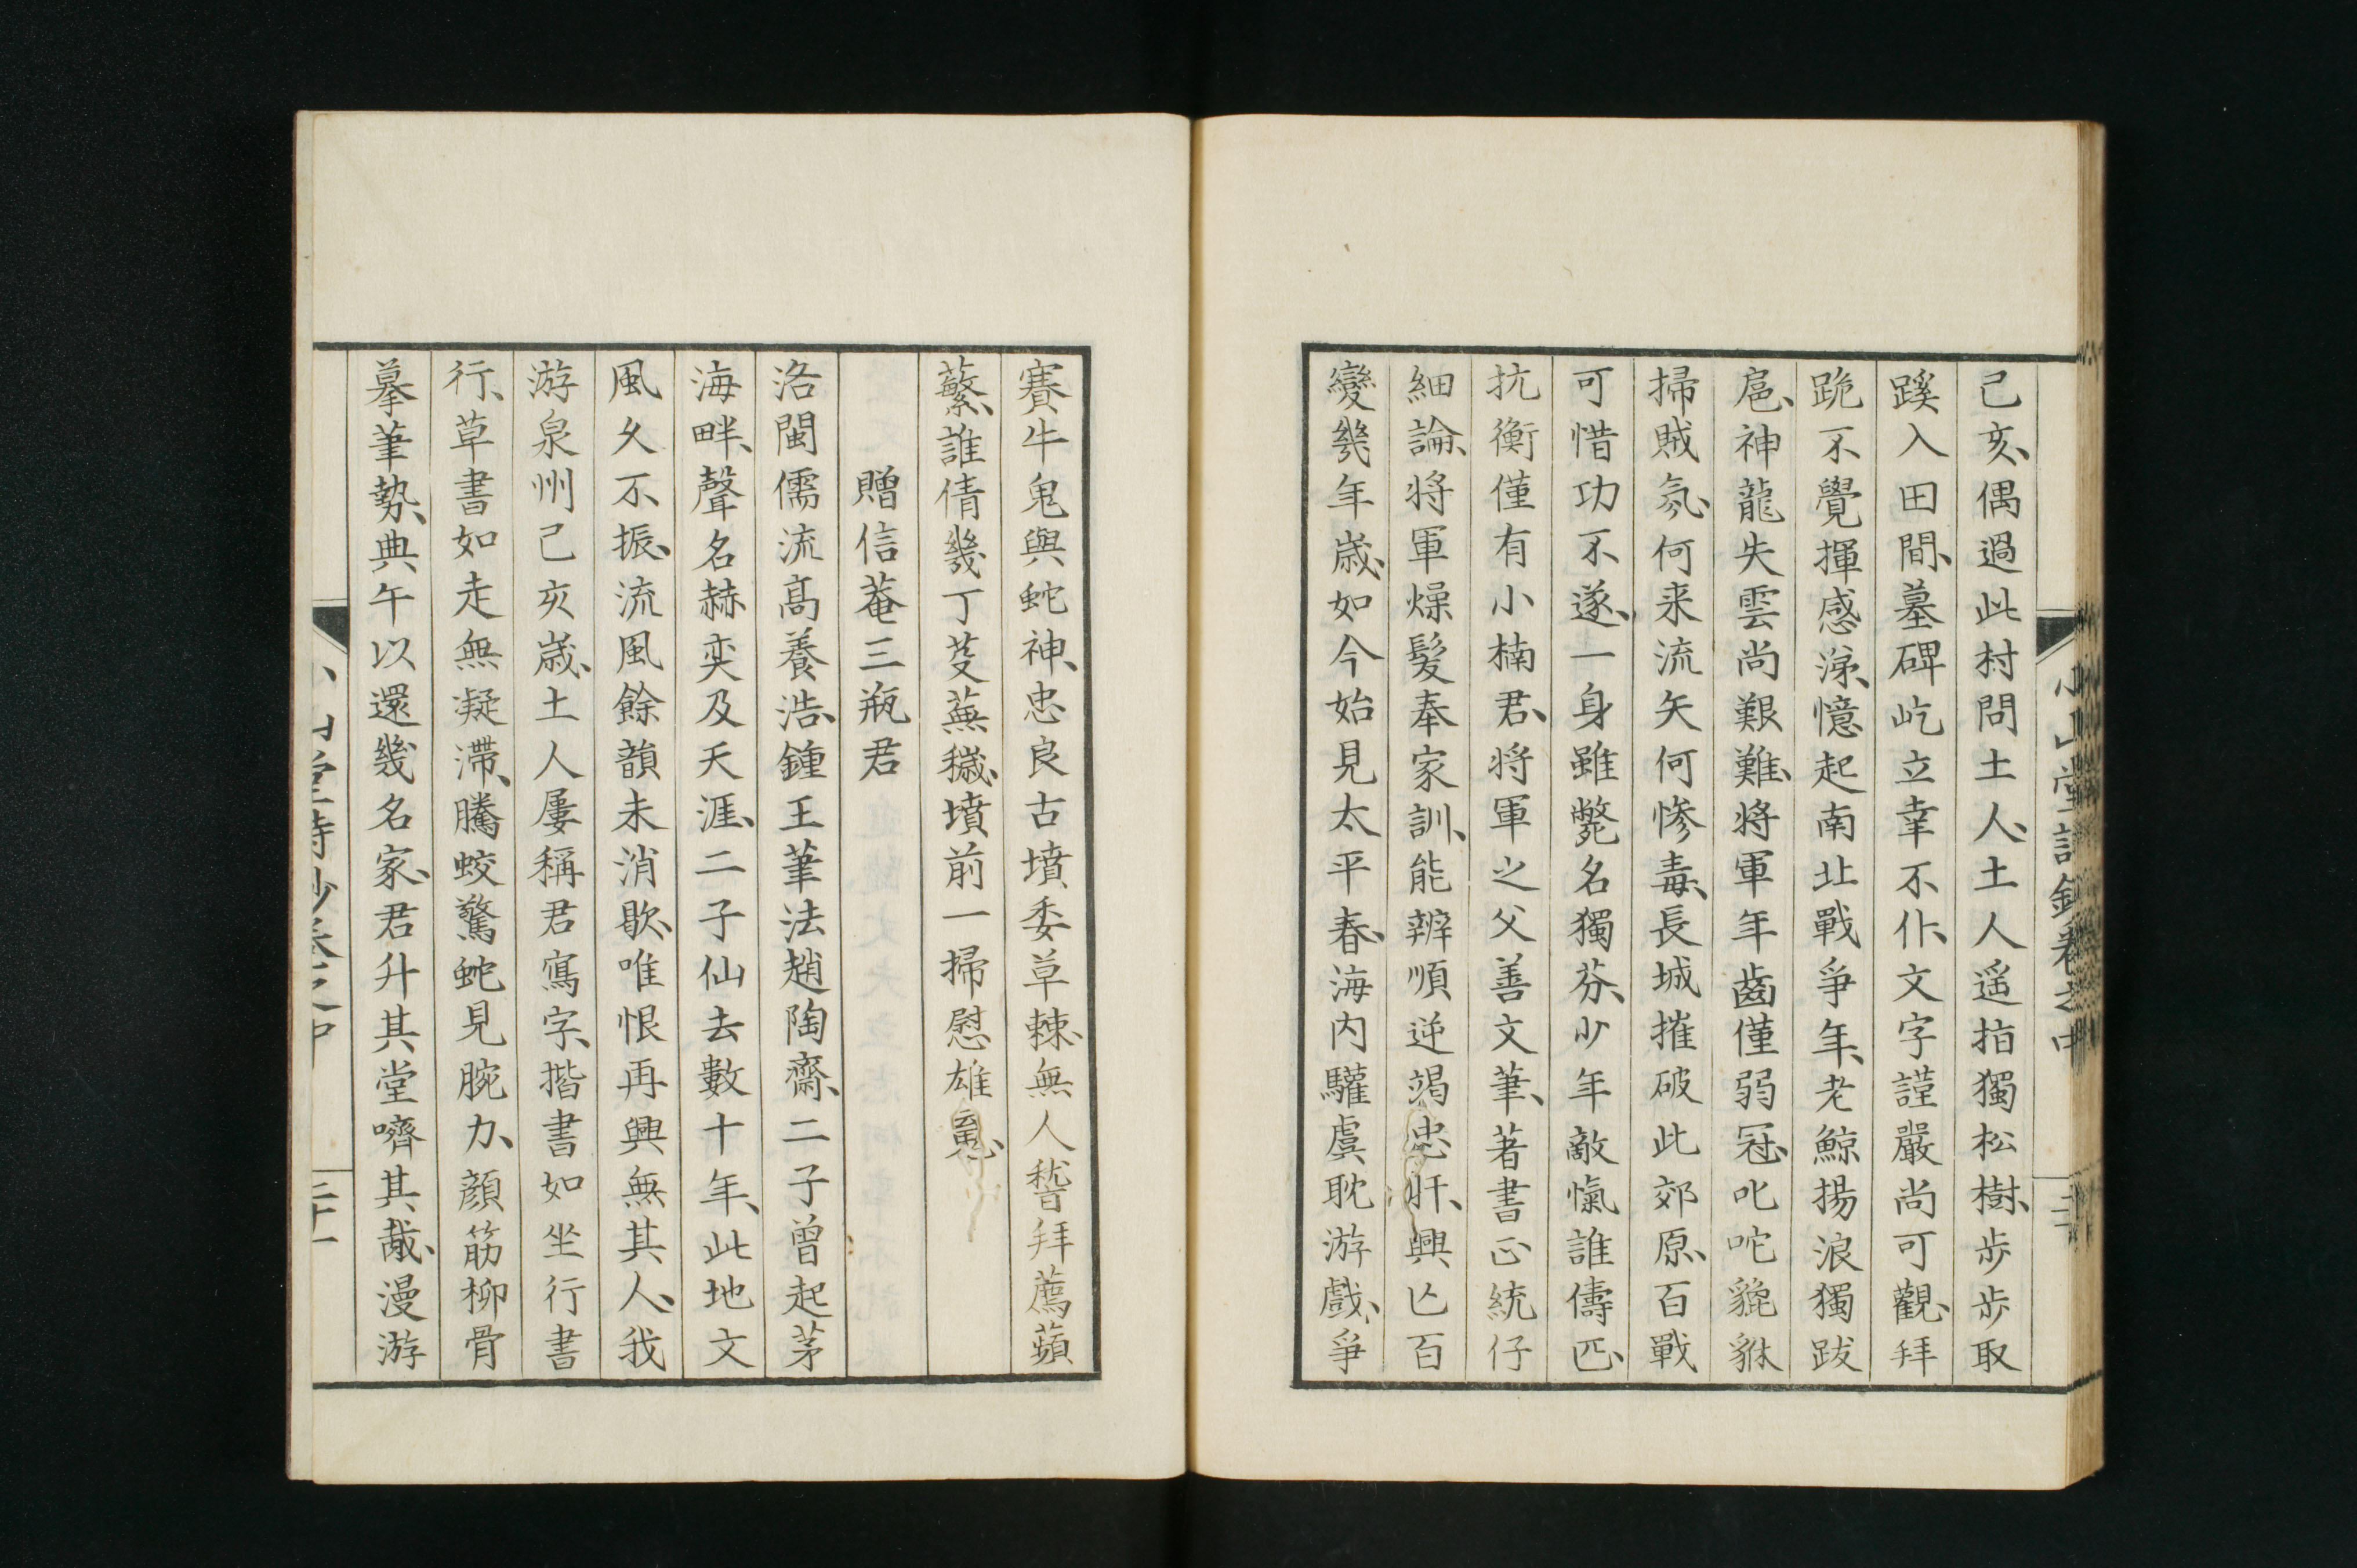 己亥、偶過此村問土人、土人遥指獨松樹、步步取
蹊入田間、墓碑屹立幸不仆、文字謹嚴尚可觀、拜
跪不覺揮感涕、憶起南北戰爭年、老鯨揚浪獨跋
扈、神龍失雲尚艱難、將軍年齒僅弱冠、叱咤貔貅
掃賊氛、何来流矢何惨毒、長城摧破此郊原、百戰
可惜功不遂、一身雖斃名獨芬、少年敵愾誰儔匹、
抗衡僅有小楠君、將軍之父善文筆、著書正統仔
細論、將軍燥髮奉家訓、能辨順逆竭忠肝、興亡百
變幾年歳、如今始見太平春、海内驩虞耽游戲、爭
賽牛鬼與蛇神、忠良古墳委草棘、無人誓拜薦蘋
蘩、誰倩幾丁芟蕪穢、墳前一掃慰雄䰟、
贈信菴三瓶君
洛閩儒流高養浩、鍾王筆法趙陶齋、二子曾起茅
海畔、聲名赫奕及天涯、二子仙去數十年、此地文
風久不振、流風餘韻未消歇、唯恨再興無其人、我
游泉州己亥歳、土人屢稱君寫字、揩書如坐行書
行、草書如走無凝滯、騰蛟驚蛇見腕力、顔筋柳骨
摹筆勢、典午以還幾名家、君升其堂嚌其胾、漫游
小山堂詩鈔卷之中
三十一